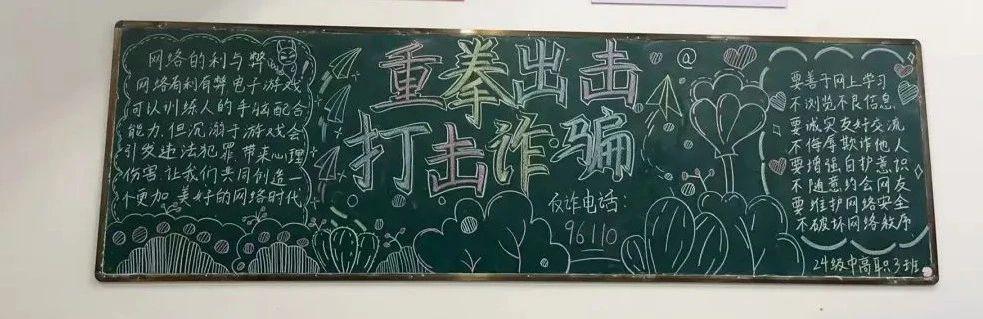 网络的利与弊
网络有利有弊电子游戏
可以训练人的手脑配合
能力,但沉溺于游戏会
引发违法犯罪 带来心理
伤害 让我们共同创造一
个更加 美好的网络时代
重拳出击
打击诈骗
反诈电话:
96110
@
要善于网上学习
不浏览不良信息
要诚实友好交流
不侮辱欺诈他人
要增强自护意识
不随意约会网友
要维护网络安全
不破坏网络秩序
24级中高职3班